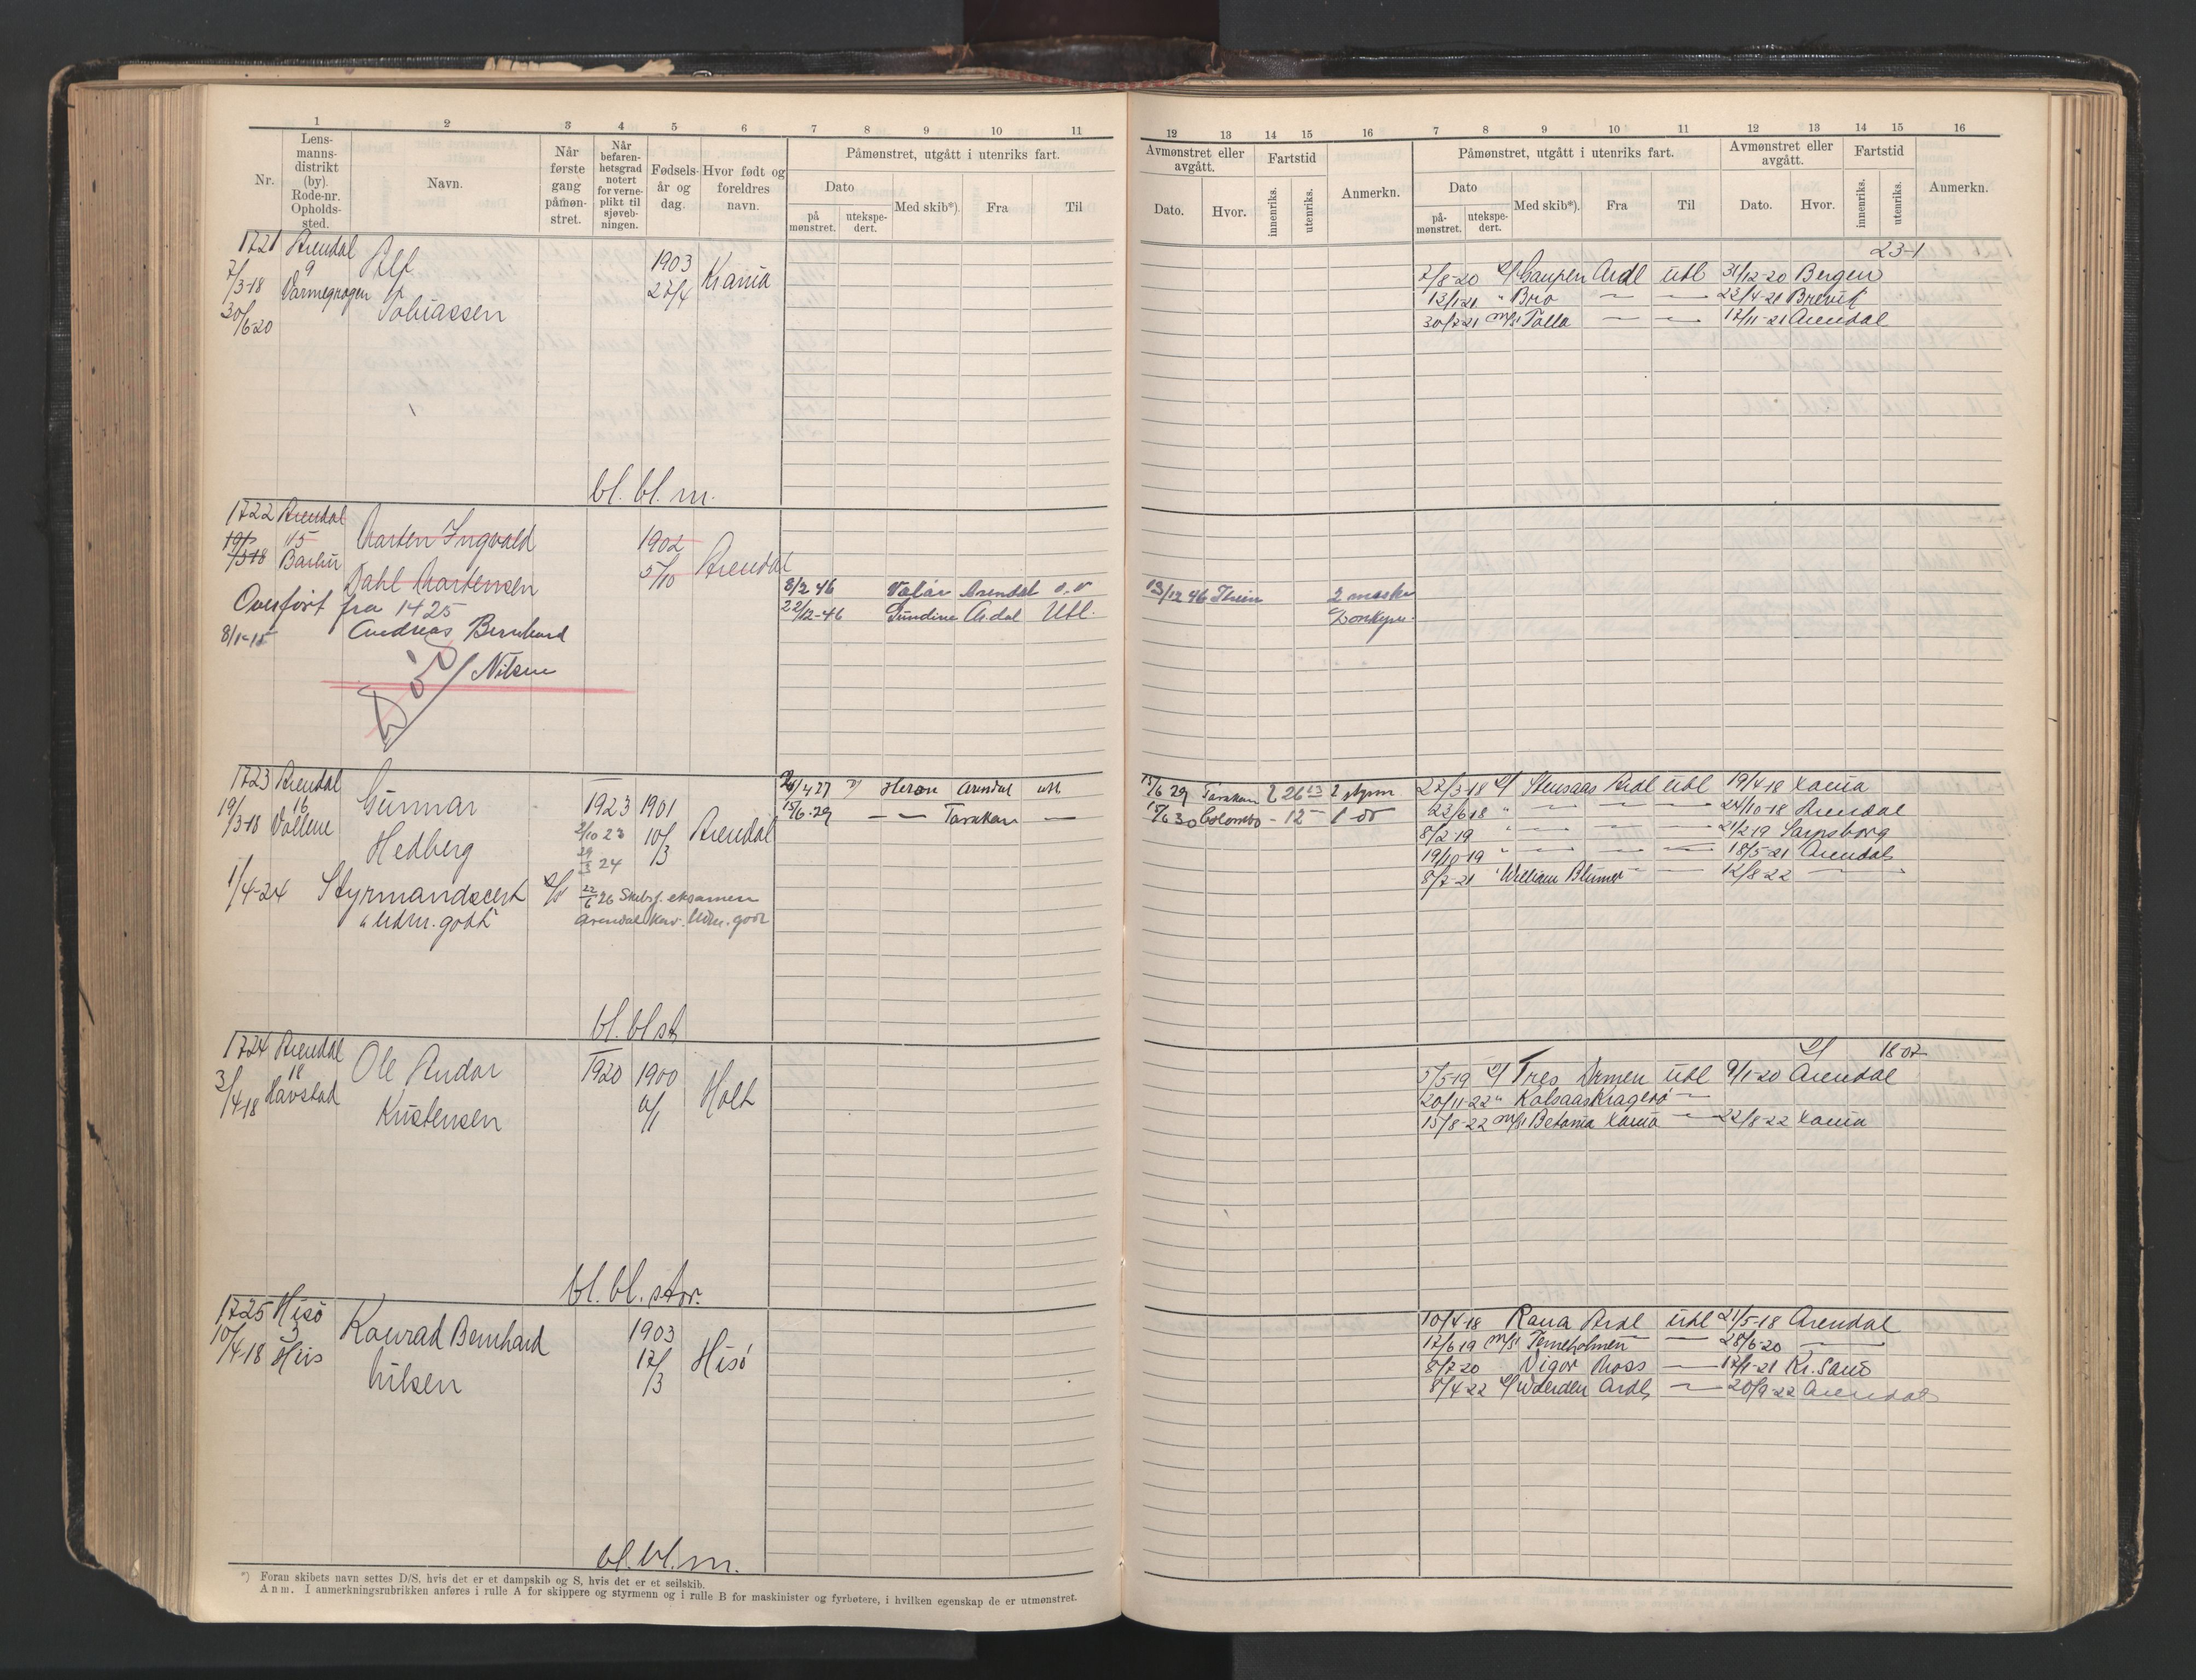 1 2 3 4 5 6 7 8 9 10 11
Nr. Lensmannsdistrikt (by). Rode-nr. Opholdssted. Navn. Når første gang påmønstret. Når befarenhetsgrad notert for verneplikt til sjøvebningen. Fødselsår og dag. Hvor født og foreldres navn. Påmønstret, utgått i utenriks fart.
Dato Med skib*). Fra Til
på mønstret. utekspedert.
1721 Arendal
7/3-18 9 Alf 1903 Krania
Varmegrogen Tobiassen 27/4
30/6-20
bl. bl. m.
1722 Arendal
19/3-18 45 Marten Ingvald 1902 Arendal
Barbu Dahl Martensen 5/10
Overført fra 1425 8/2 46 Valår Arendal o.v
8/1-15 Andreas Bernhard 22/12-46 Gundine Ardal Utl.
Nilsen
Død
1723 Arendal Gunnar 1923 1901 Arendal 26/4 27 Heron Arendal utl
19/3-18 16 Vollene Hedberg 2/10 23 10/3 15/6-29 — — Tarakan —
29/3 24
1/4-24 Styrmandscert 22/6 26 Skibsf. eksamen
" Udm. godt" Arendal Kar. Udm. godt
bl. bl st
1724 Arendal Ole Andor 1920 1900 Holt
3/4-18 18 Havstad Kristensen 11/1
bl. bl. stor.
1725 Hisö Konrad Bernhard 1903 Hisö
10/4-18 3 His Nilsen 17/3
bl. bl. m.
*) Foran skibets navn settes D/S, hvis det er et dampskib og S, hvis det er et seilskib.
Anm. I anmerkningsrubrikken anføres i rulle A for skippere og styrmenn og i rulle B for maskinister og fyrbøtere, i hvilken egenskap de er utmønstret.
12 13 14 15 16 7 8 9 10 11 12 13 14 15 16
Avmønstret eller avgått. Fartstid Anmerkn. Påmønstret, utgått i utenriks fart. Avmønstret eller avgått. Fartstid Anmerkn.
Dato. Hvor. innenriks. utenriks. Dato Med skib*). Fra Til Dato. Hvor. innenriks. utenriks.
påmønstret. utekspedert.
23-1
7/8-20 Gaupen Ardl Utl 31/12-20 Bergen
12/1-21 " Bro — — 23/4-21 Brevik
30/7-21 M/S Tolla — — 17/11-21 Arendal
13/12 46 Thein 2 mask
Donkym.
15/6 29 Tarakan 2 26 13 2 styrm 22/3-18 Stensaas Ardl Utl 19/4-18 Xania
15/6 30 Colombo - 12 - 1 do 23/6 18 " — — — 24/10-18 Arendal
8/2-19 " — — — 21/2-19 Sarpsborg
19/10-19 " — — — 18/5-21 Arendal
8/7-21 " William Blumer — — 12/8-22 —
18-07
5/5-19 Tres Armen Utl 9/1-20 Arendal
20/11-22 " Kolsaas Kragerö —
15/8-22 M/S Betania Xania — 22/8-22 Xania
10/4-18 Rana Ardl Utl 21/5-18 Arendal
17/6 19 M/S Terneholmen — 28/6-20 —
8/7-20 Vigor Moss — 17/1-21 Kr. Sand
8/4-22 Werden Ardl — 20/9-22 Arendal